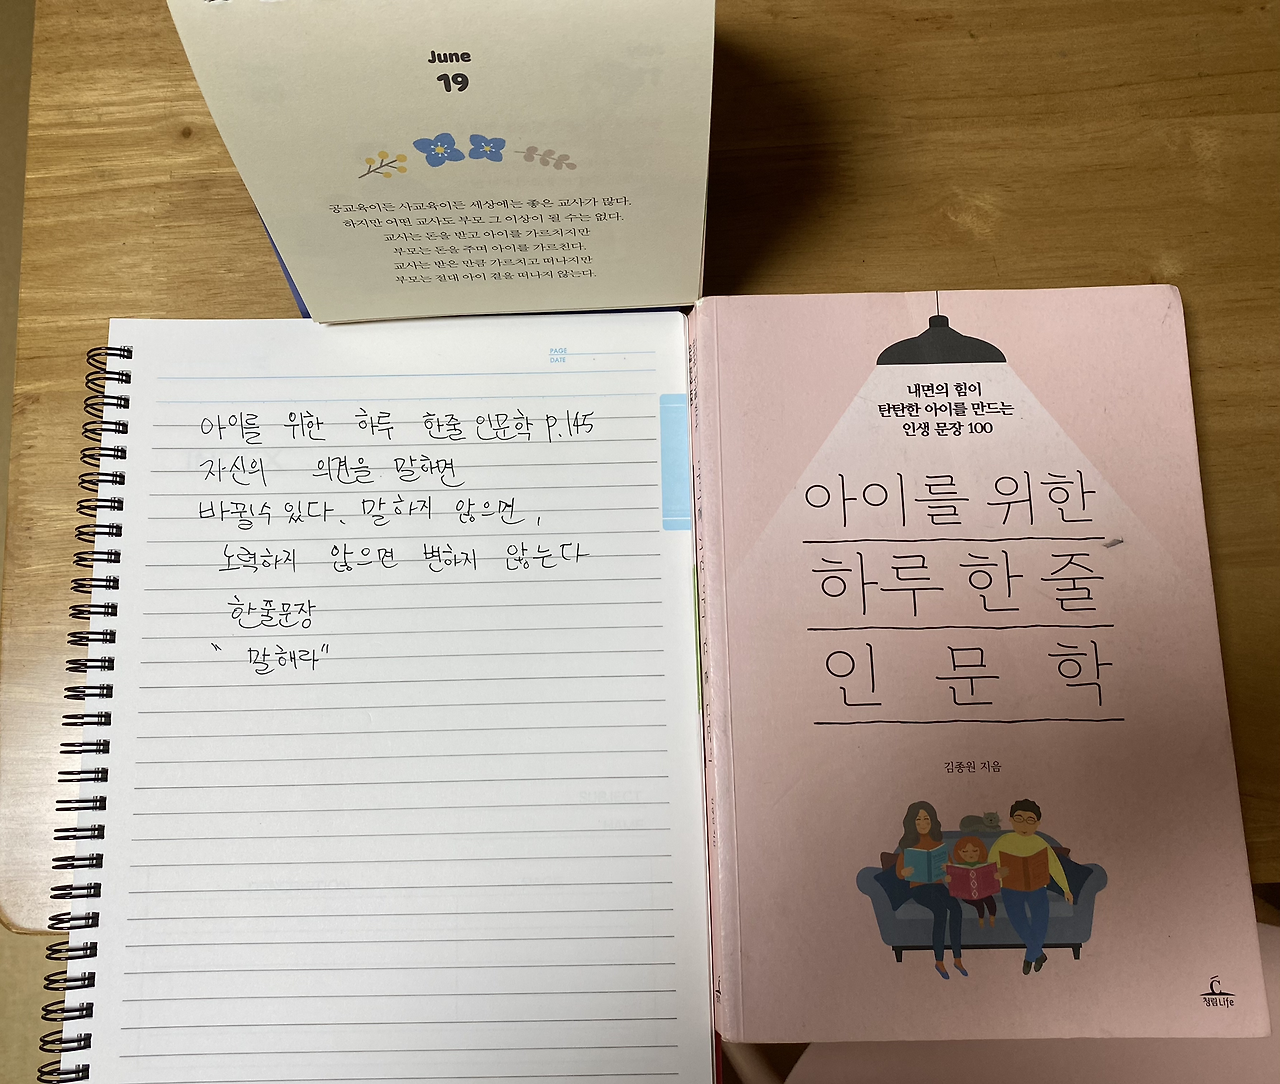 June
19
공교육이든 사교육이든 세상에는 좋은 교사가 많다.
하지만 어떤 교사도 부모 그 이상이 될 수는 없다.
교사는 돈을 받고 아이를 가르치지만
부모는 돈을 주며 아이를 가르친다.
교사는 받은 만큼 가르치고 떠나지만
부모는 절대 아이 곁을 떠나지 않는다.
PAGE
DATE
아이를 위한 하루 한줄 인문학 p.145
자신의 의견을 말하면
바뀔수 있다. 말하지 않으면,
노력하지 않으면 변하지 않는다
한줄문장
" 말해라"
내면의 힘이
탄탄한 아이를 만드는
인생 문장 100
아이를 위한
하루 한 줄
인문학
김종원 지음
청림Life